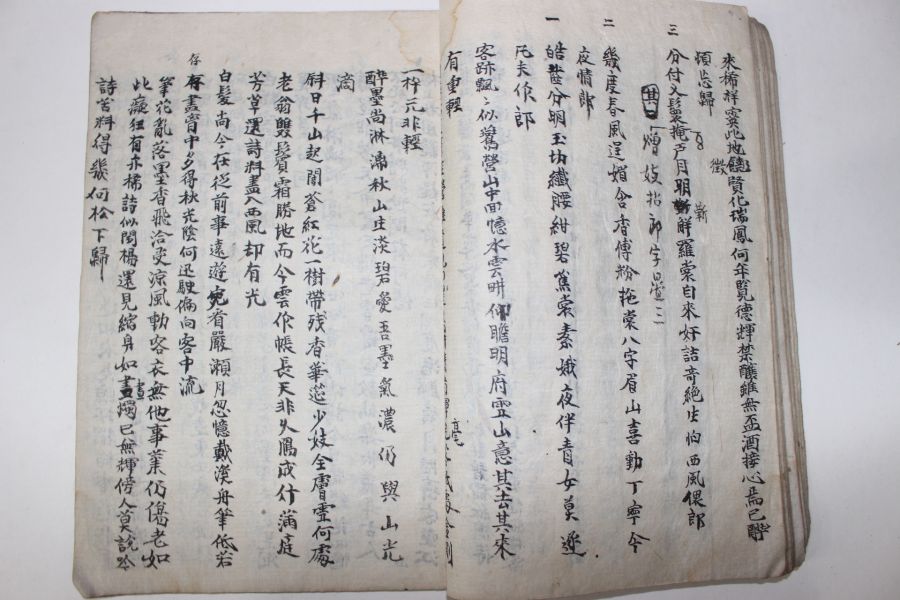 來稀祥雲此地饒賢化瑞鳳何年覽德輝禁釀雖無盃酒接心焉已醉
徵
煩忘歸
三
分付丫鬟掩戶月明新鮮羅裳自來好詰奇絕生怕西風偎郎
其二 贈妓招郎字
二
幾度春風逞媚含香傅粉拖裳八字眉山喜動丁寧今
夜情郎
一
皓齒分明玉切纖腰紺碧蕉裳素娥夜伴青女莫逆
阮夫作郎
客跡飄飄似舊營山中回憶水雲畊仰瞻明府雲山意其去其來
有重輕
一杯元非輕
醉墨尚淋漓秋山庄淡碧愛吾墨氣濃仍與山光
滴
斜日千山起闇蒼紅花一樹帶殘香華莚少妓全膚雪何處
老翁雙鬢霜勝地而今雲作帳長天非久鴈成行滿庭
芳草還詩料盡入西風却有光
白髮尚今在從前事遠遊宛看嚴瀨月忽憶戴溪舟筆低若
存
有畫育中多得秋光陰何迅駛偏向客中流
筆花亂落墨香飛洽受凉風動客衣無他事業仍傷老如
此癡狂有亦稀詩似閬楊還見縮身如畫燭已無輝傍人莫說吟
詩苦料得幾何松下歸